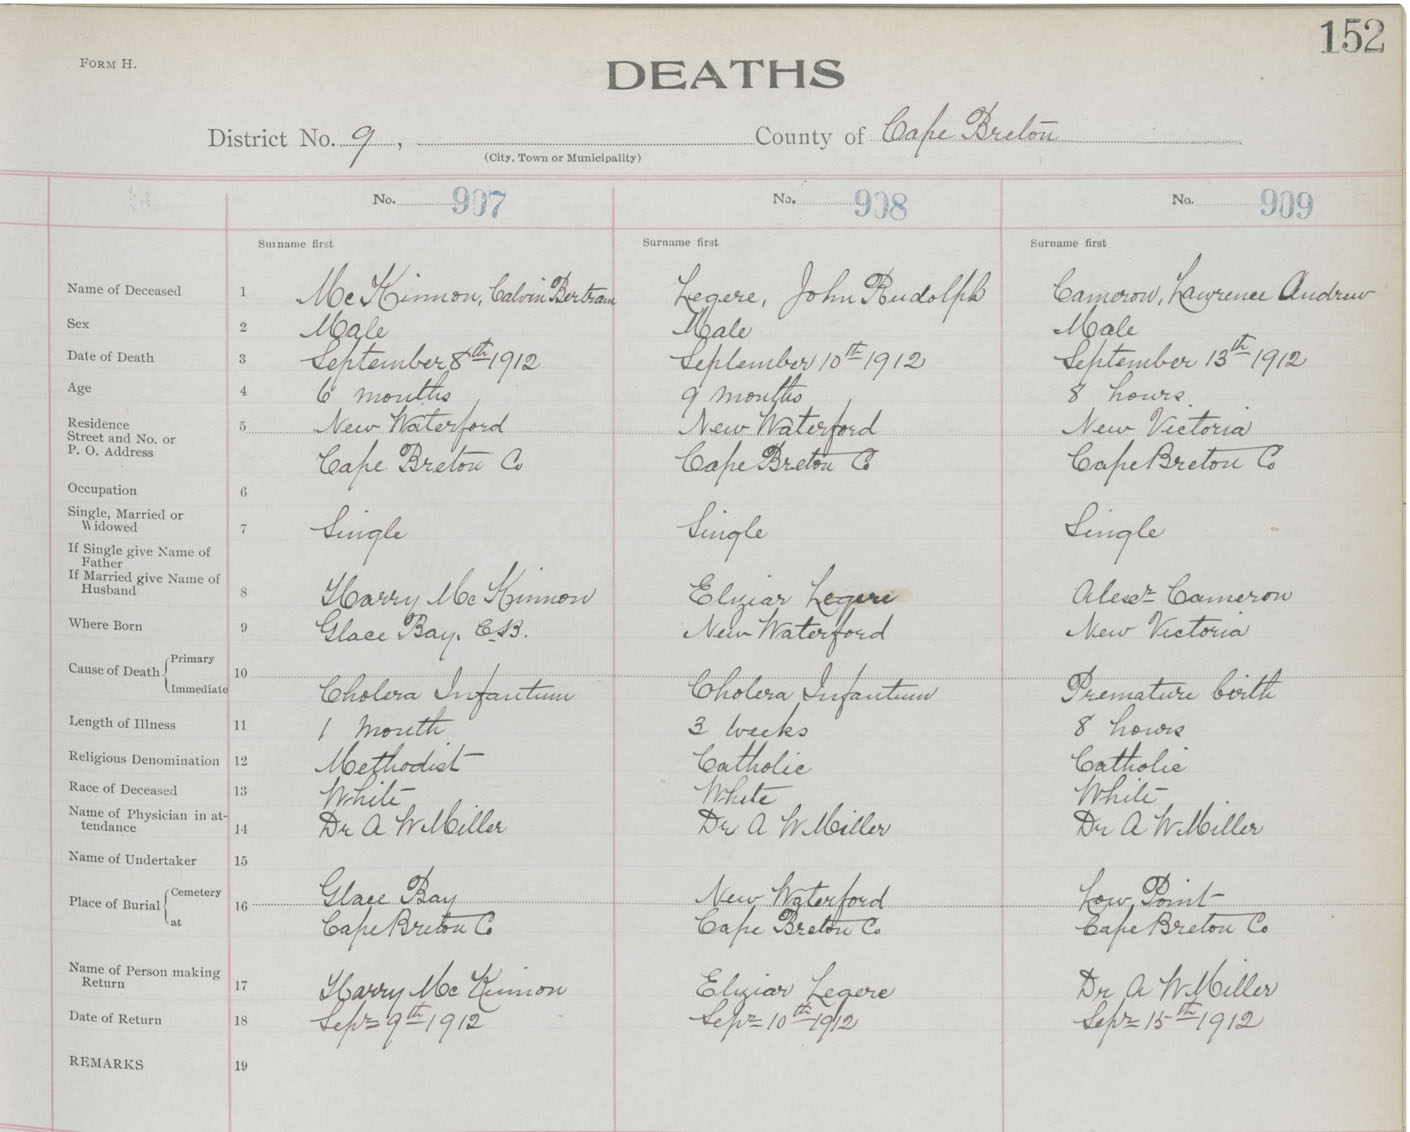 152
FORM H.
DEATHS
District No. 9, County of Cape Breton
(City, Town or Municipality)
No. 907 No. 908 No. 909
Surname first Surname first Surname first
Name of Deceased 1 McKinnon, Calvin Bertram Legere, John Rudolph Cameron, Lawrence Andrew
Sex 2 Male Male Male
Date of Death 3 September 8th 1912 September 10th 1912 September 13th 1912
Age 4 6 months 9 months 8 hours
Residence 5 New Waterford New Waterford New Victoria
Street and No. or
P. O. Address Cape Breton Co Cape Breton Co Cape Breton Co
Occupation 6
Single, Married or
Widowed 7 Single Single Single
If Single give Name of
Father
If Married give Name of
Husband 8 Harry McKinnon Eliziar Legere Alexr Cameron
Where Born 9 Glace Bay, C.B. New Waterford New Victoria
Cause of Death { Primary 10
Immediate Cholera Infantum Cholera Infantum Premature birth
Length of Illness 11 1 month 3 weeks 8 hours
Religious Denomination 12 Methodist Catholic Catholic
Race of Deceased 13 White White White
Name of Physician in at-
tendance 14 Dr A W Miller Dr A W Miller Dr A W Miller
Name of Undertaker 15
Place of Burial { Cemetery 16 Glace Bay New Waterford Low Point
at Cape Breton Co Cape Breton Co Cape Breton Co
Name of Person making
Return 17 Harry McKinnon Eliziar Legere Dr A W Miller
Date of Return 18 Sepr 9th 1912 Sepr 10th 1912 Sepr 15th 1912
REMARKS 19